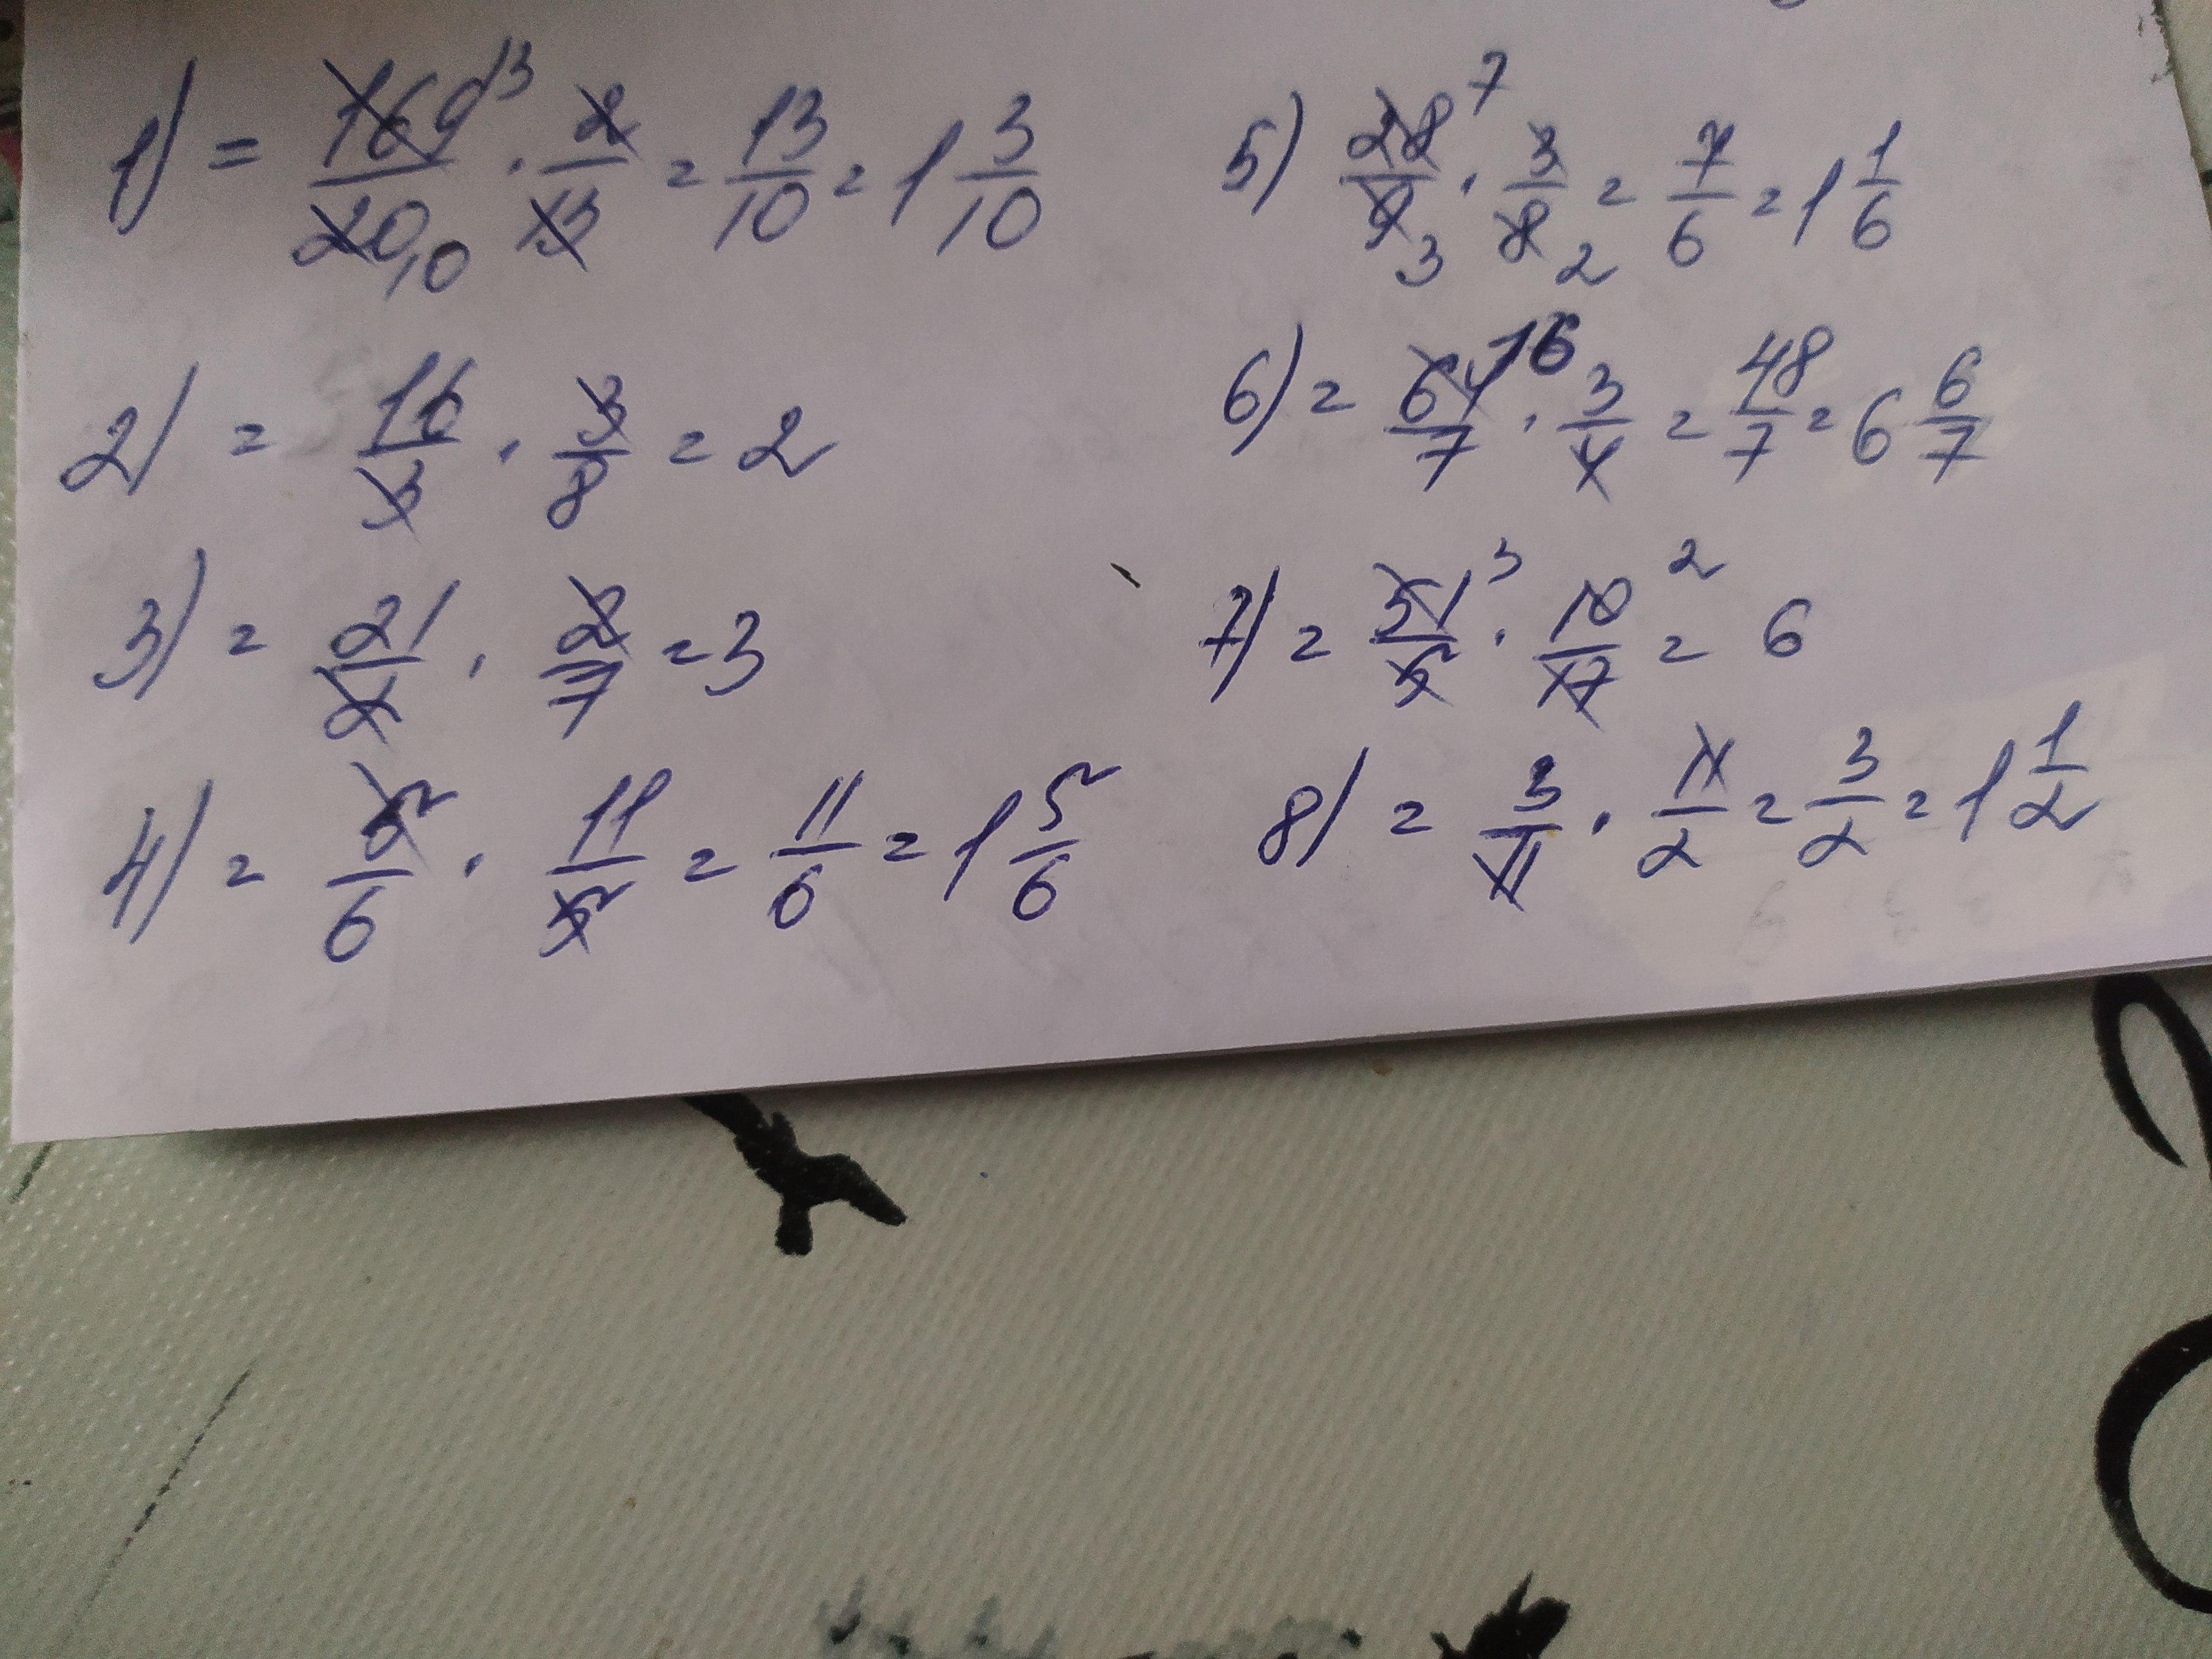 1) = 169/20 13 10 · 2/13 = 13/10 = 1 3/10
2) = 16/3 · 3/8 = 2
3) = 21/2 · 2/7 = 3
4) = 5/6 · 11/5 = 11/6 = 1 5/6
5) 28/9 7 3 · 3/8 2 = 7/6 = 1 1/6
6) = 64/7 16 · 3/4 = 48/7 = 6 6/7
7) = 51/5 3 · 10/17 2 = 6
8) = 3/11 · 11/2 = 3/2 = 1 1/2